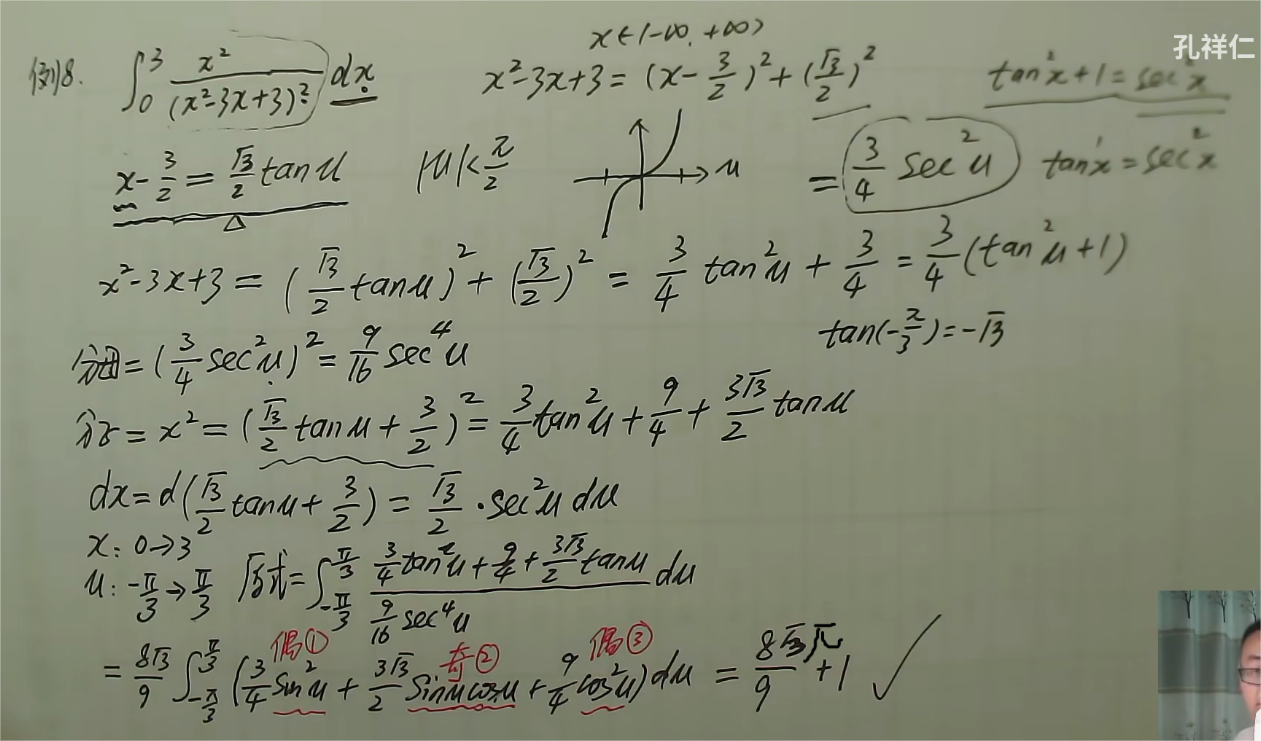 孔祥仁
例8. ∫₀³ x²/(x²-3x+3)² dx
x∈(-∞, +∞)
x²-3x+3 = (x - 3/2)² + (√3/2)²
tan²x+1 = sec²x
x - 3/2 = √3/2 tan u |u| < π/2
u
= 3/4 sec²u tan'x = sec²x
x²-3x+3 = (√3/2 tan u)² + (√3/2)² = 3/4 tan²u + 3/4 = 3/4 (tan²u + 1)
tan(-π/3) = -√3
分母 = (3/4 sec²u)² = 9/16 sec⁴u
分子 = x² = (√3/2 tan u + 3/2)² = 3/4 tan²u + 9/4 + 3√3/2 tan u
dx = d(√3/2 tan u + 3/2) = √3/2 · sec²u du
x: 0→3
u: -π/3→π/3 原式 = ∫_{-π/3}^{π/3} (3/4 tan²u + 9/4 + 3√3/2 tan u)/(9/16 sec⁴u) du
偶① 奇② 偶③
= 8√3/9 ∫_{-π/3}^{π/3} (3/4 sin²u + 3√3/2 sin u cos u + 9/4 cos²u) du = 8√3π/9 + 1 ✓